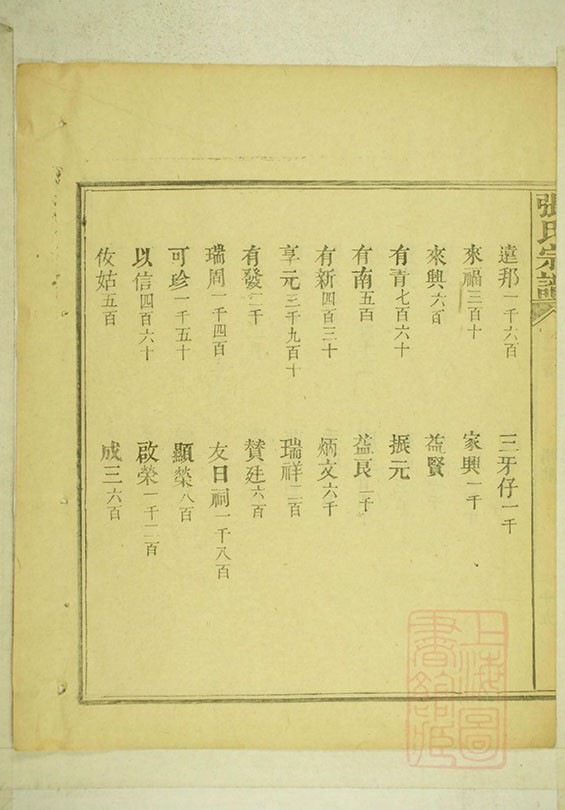 張氏宗譜
遠邦 一千六百　三牙仔 一千
來福 三百十　家興 一千
來興 六百　益賢
有青 七百六十　振元
有南 五百　益良 二千
有新 四百三十　炳文 六千
享元 三千九百十　瑞祥 二百
有發 二千　贊廷 六百
瑞周 一千四百　友日祠 一千八百
可珍 一千五十　顯榮 八百
以信 四百六十　啟榮 一千二百
攸姑 五百　成三 六百
上海圖書館藏